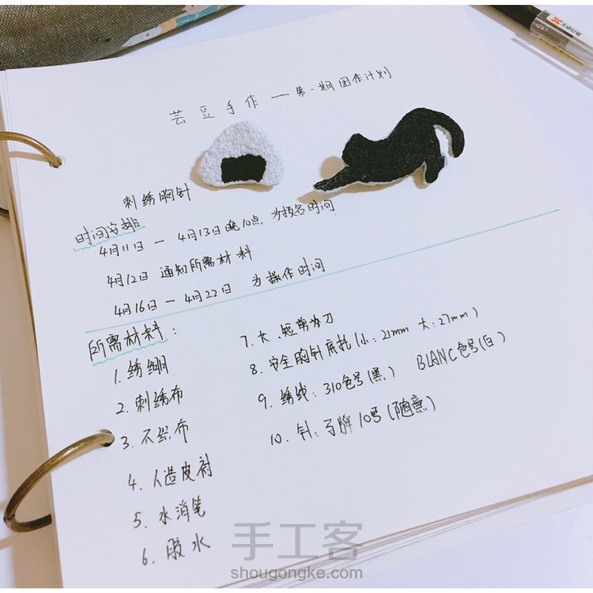 芸豆手作——第一期团作计划
刺绣胸针
时间安排
4月11日 — 4月13日晚10点 为报名时间
4月12日 通知所需材料
4月16日 — 4月22日 为操作时间
所需材料:
1. 绣绷
2. 刺绣布
3. 不织布
4. 人造皮衬
5. 水消笔
6. 胶水
7. 大、短剪刀
8. 安全胸针底托(小:21mm 大:27mm)
9. 绣线:310色号(黑) BLANC色号(白)
10. 针:弓牌10号(随意)
手工客
shougongke.com